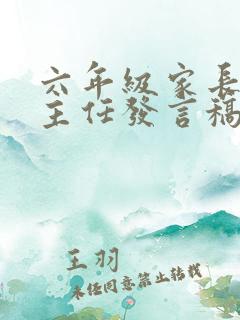 六年級家長
主任發言稿
王羽
未經同意禁止轉載